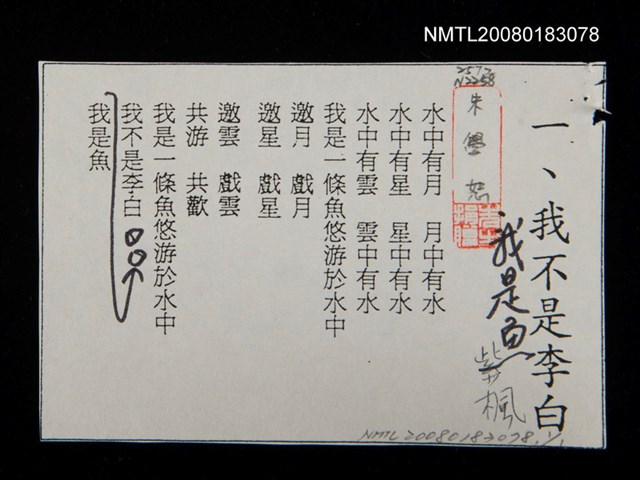 NMTL20080183078
一、我不是李白
我是魚
紫楓
朱學恕
水中有月 月中有水
水中有星 星中有水
水中有雲 雲中有水
我是一條魚悠游於水中
邀月 戲月
邀星 戲星
邀雲 戲雲
共游 共歡
我是一條魚悠游於水中
我不是李白
我是魚
NMTL20080183078